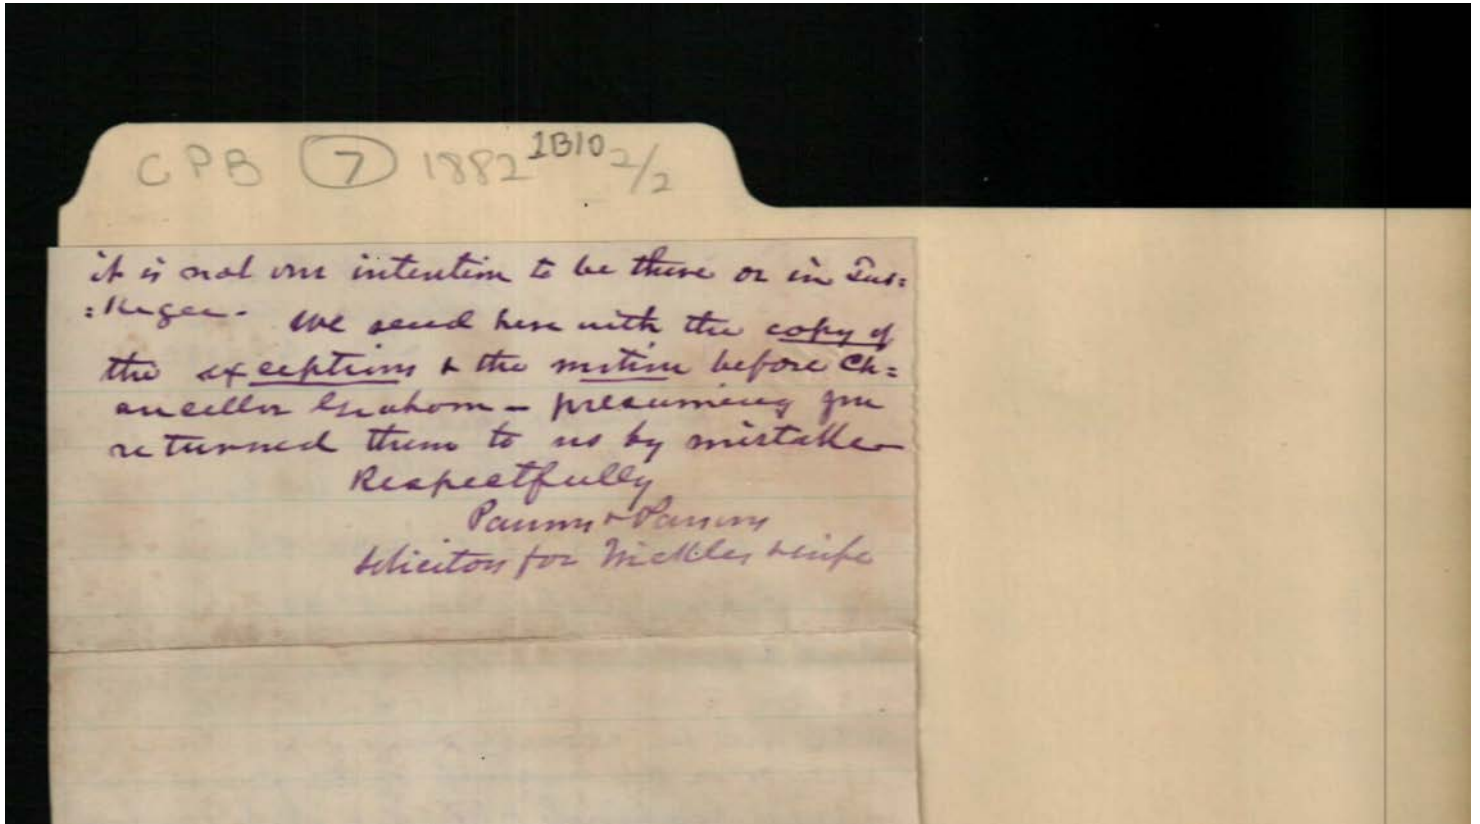 CPB 7 1882 1B10 2/2
it is not our intention to be there or in Tus=
=kegee. We send here with the copy of
the exceptions & the motion before Ch=
ancellor Graham - presuming you
returned them to us by mistake
Respectfully
Parsons & Parsons
Solicitors for Nickles & wife